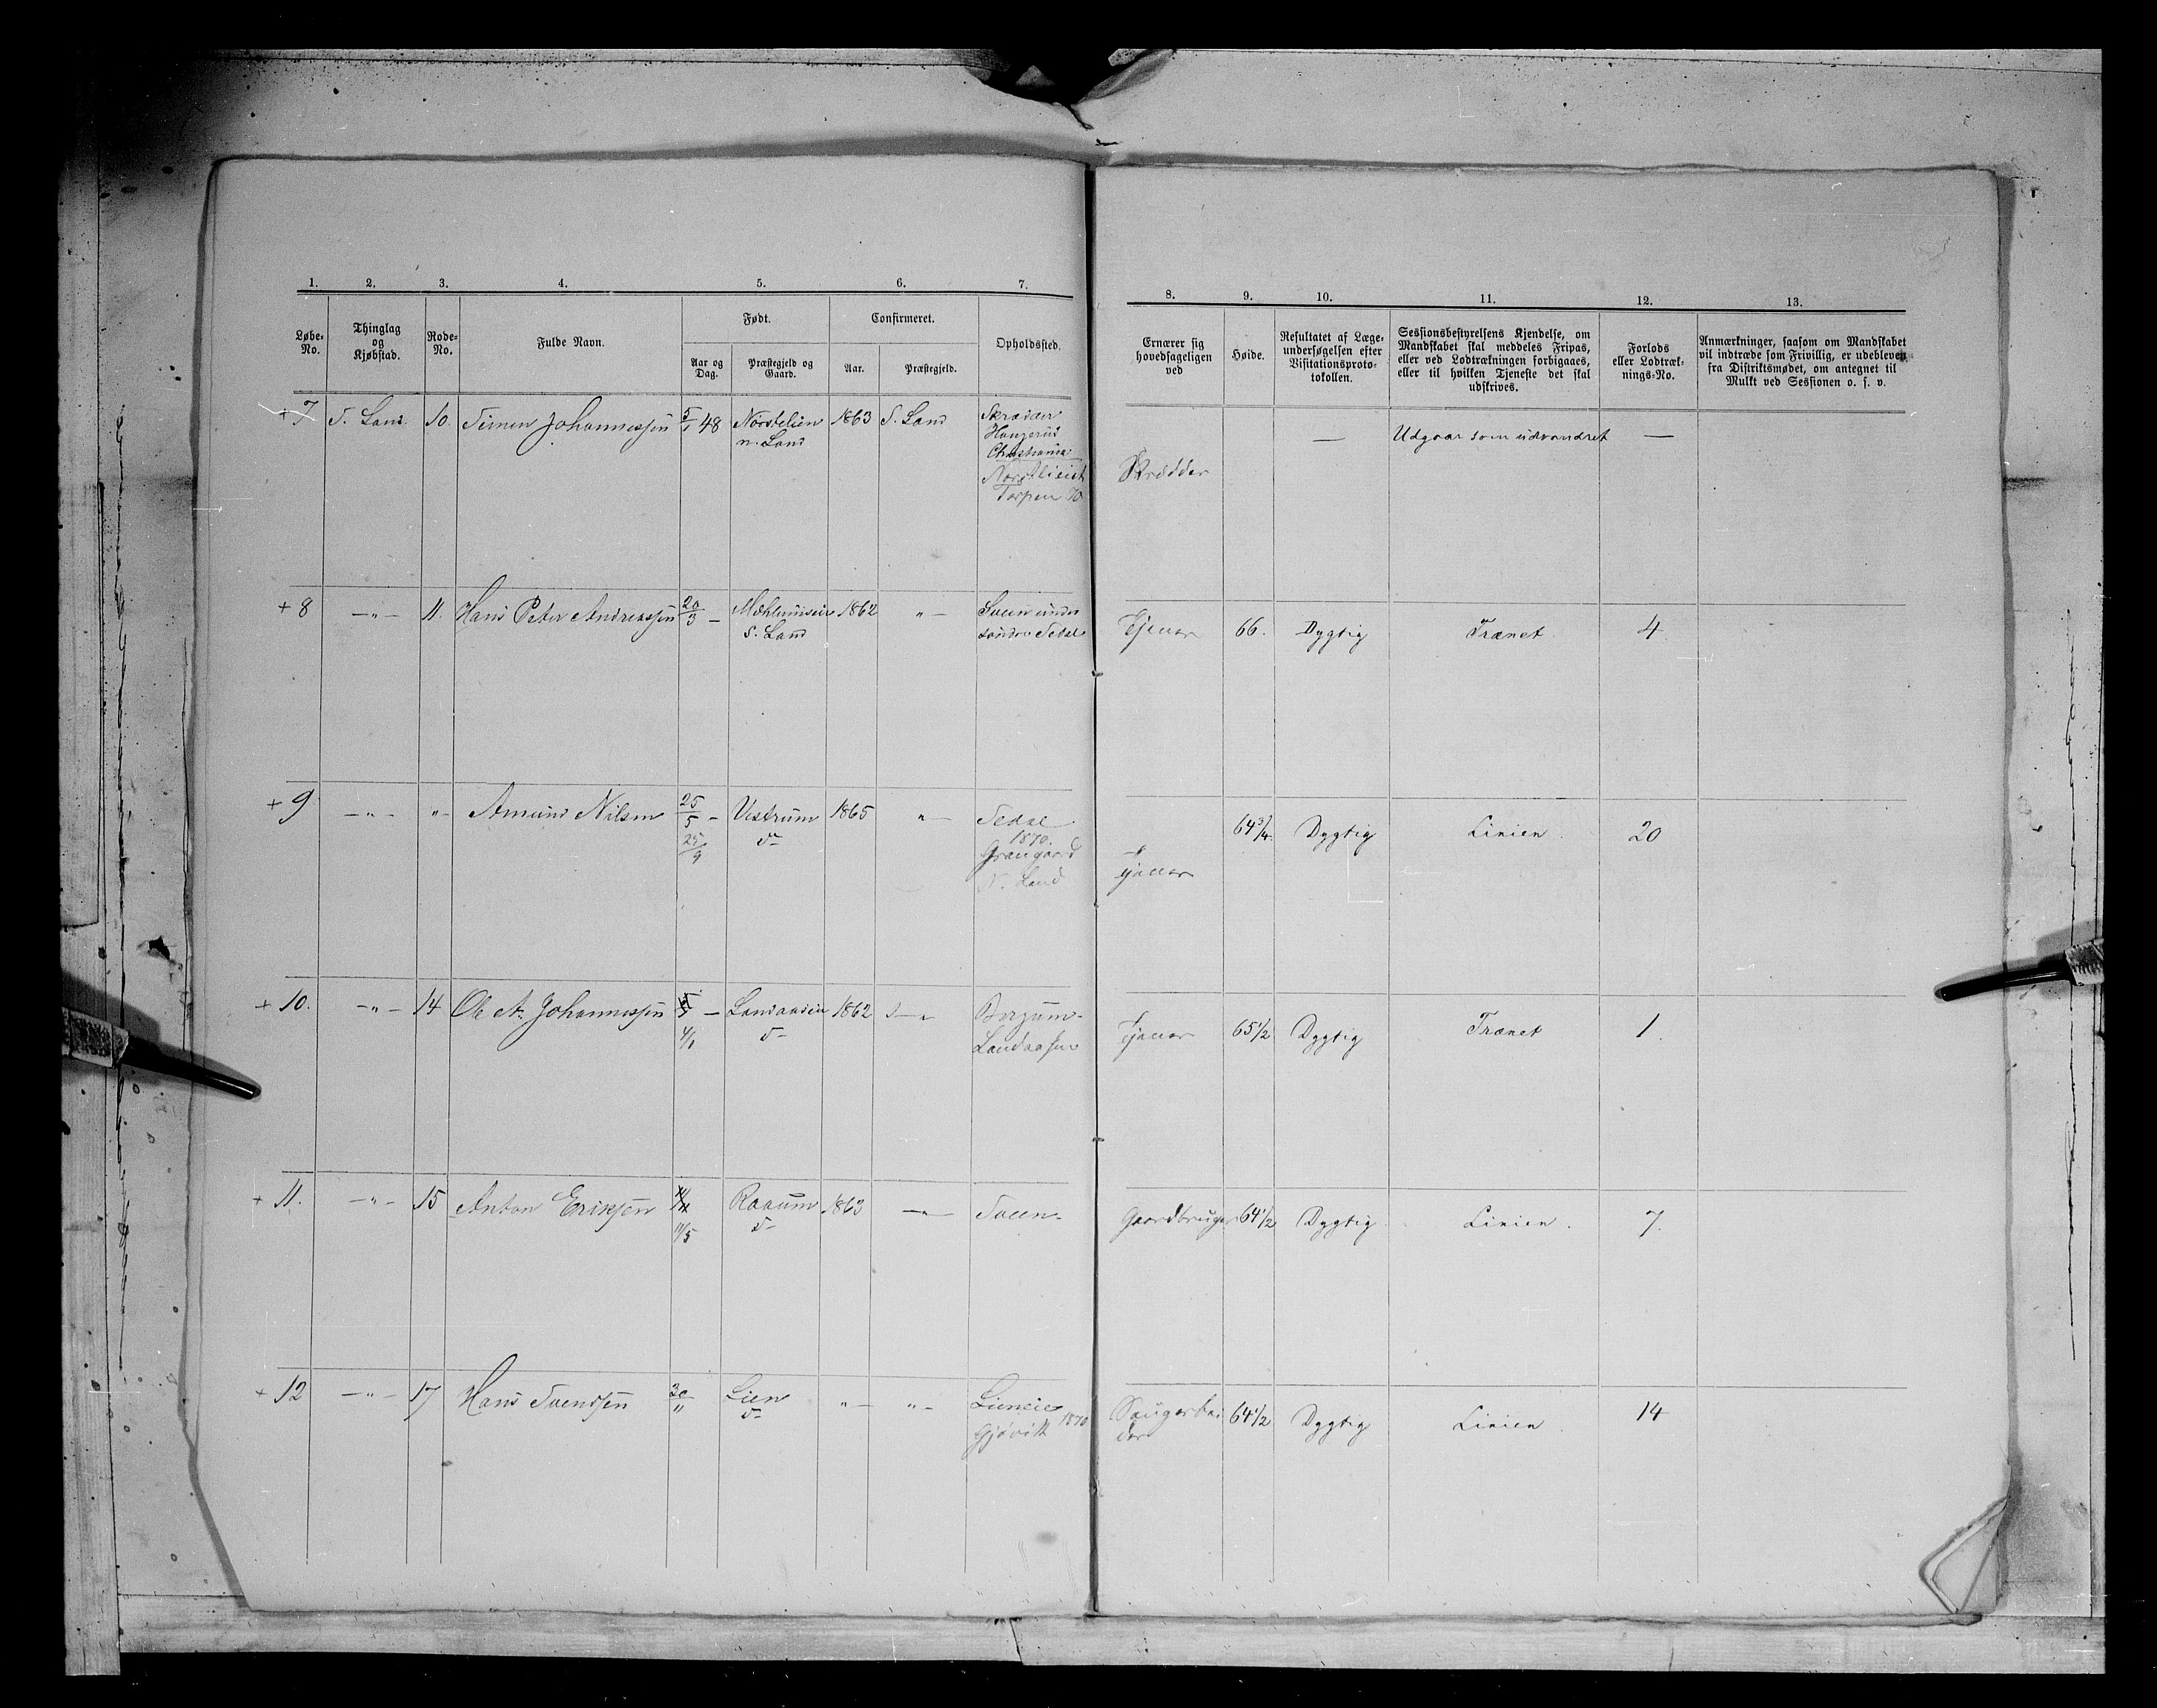 1. 2. 3. 4. 5. 6. 7.
Løbe-No. Thinglag og Kjøbstad. Rode-No. Fulde Navn. Født. Confirmeret. Opholdssted.
Aar og Dag. Præstegjeld og Gaard. Aar. Præstegjeld.
8. 9. 10. 11. 12. 13.
Ernærer sig hovedsageligen ved
Høide.
Resultatet af Læge-undersøgelsen efter Visitationsproto-tokollen.
Sessionsbestyrelsens Kjendelse, om Mandskabet skal meddeles Fripas, eller ved Lodtrækningen forbigaaes, eller til hvilken Tjeneste det skal udskrives.
Forlods eller Lodtræk-nings-No.
Anmærkninger, saasom om Mandskabet vil indtræde som Frivillig, er udebleven fra Distriktsmødet, om antegnet til Mulkt ved Sessionen o. s. v.
+ 7 S. Land. 10. Simen Johannessen 5/1 48 Norstelien 1863 S. Land Skrædder
n. Land
Christiania
Torpen 70
Skrædder — Udgaar som udvandret —
+ 8 — " — 11. Hans Peter Andreassen 20/3 — 1862 " — Sveen under
S. Land søndre Sedal
Tjener 66. Dygtig Trænet 4
+ 9 — " — " — Amund Nilsen 25/5 — Vestrum 1865 " — Sedal
25/9 d— 1870.
Grangaard
N. Land
Tjener 64 3/4. Dygtig Linien. 20
+ 10. — " — 14 Ole A. Johannessen — Landaasen 1862
4/1 d— Landaasen
Tjener 65 1/2 Dygtig Trænet 1.
+ 11. — " — 15 Anton Eriksen Raaum 1863 — " — Sveen
11/5 d—
Gaardbruger 64 1/2 Dygtig Linien. 7.
+ 12 — " — 17 Hans Svendsen 30/11 Lien " — " — Lieneie
d— Gjøvik 1870
Saugarbeider 64 1/2 Dygtig Linien. 14